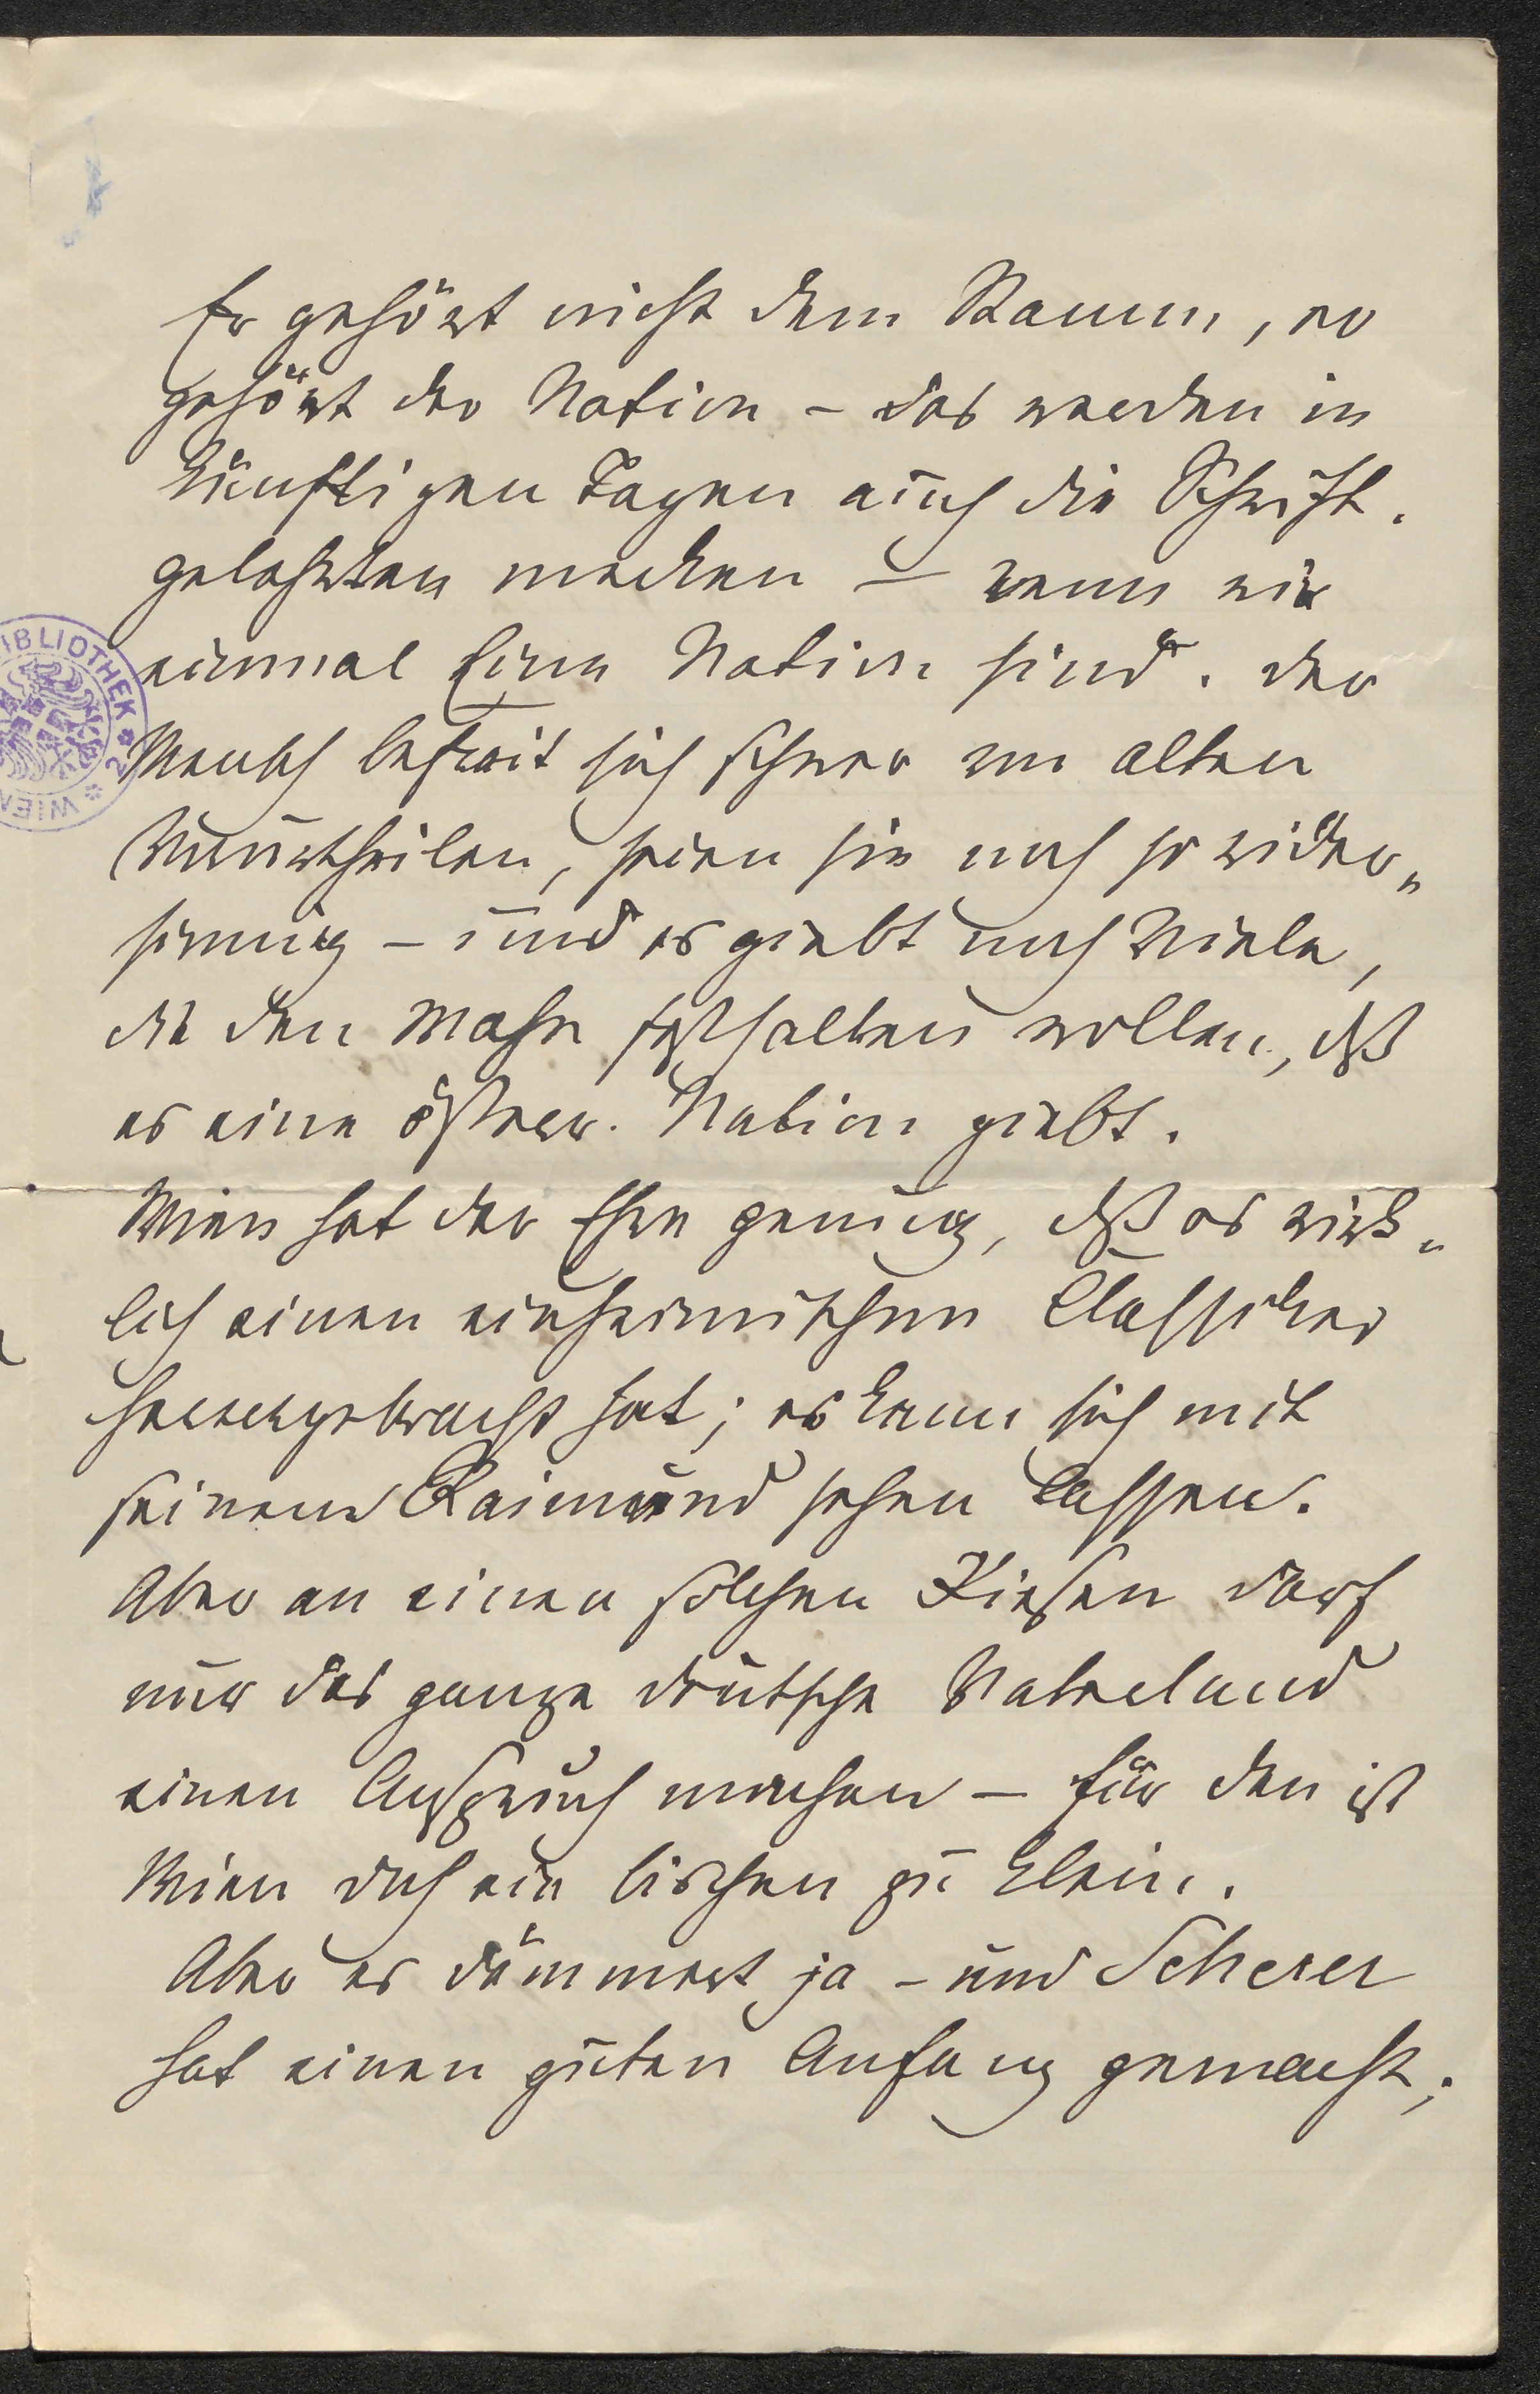 Er gehört nicht dem Stamm, er
gehört der Nation – das werden in
künftigen Tagen auch die Schrift-
gelehrten merken – wenn wir
einmal Eine Nation sind. Der
Mensch befreit sich schwer von alten
Vorurtheilen, seien sie noch so wider„
sinnig – und es giebt noch Viele,
die den Wahn festhalten wollen, dß
es eine österr. Nation giebt.
Wien hat der Ehre genug, dß es wirk„
lich einen einheimischen Classiker
hervorgebracht hat; es kann sich mit
seinem Raimund sehen lassen.
Aber an einen solchen Riesen darf
nur das ganze deutsche Vaterland
einen Anspruch machen – für den ist
Wien doch ein bischen zu klein.
Aber es dämmert ja – und Scherer
hat einen guten Anfang gemacht;
BIBLIOTHEK * WIEN *